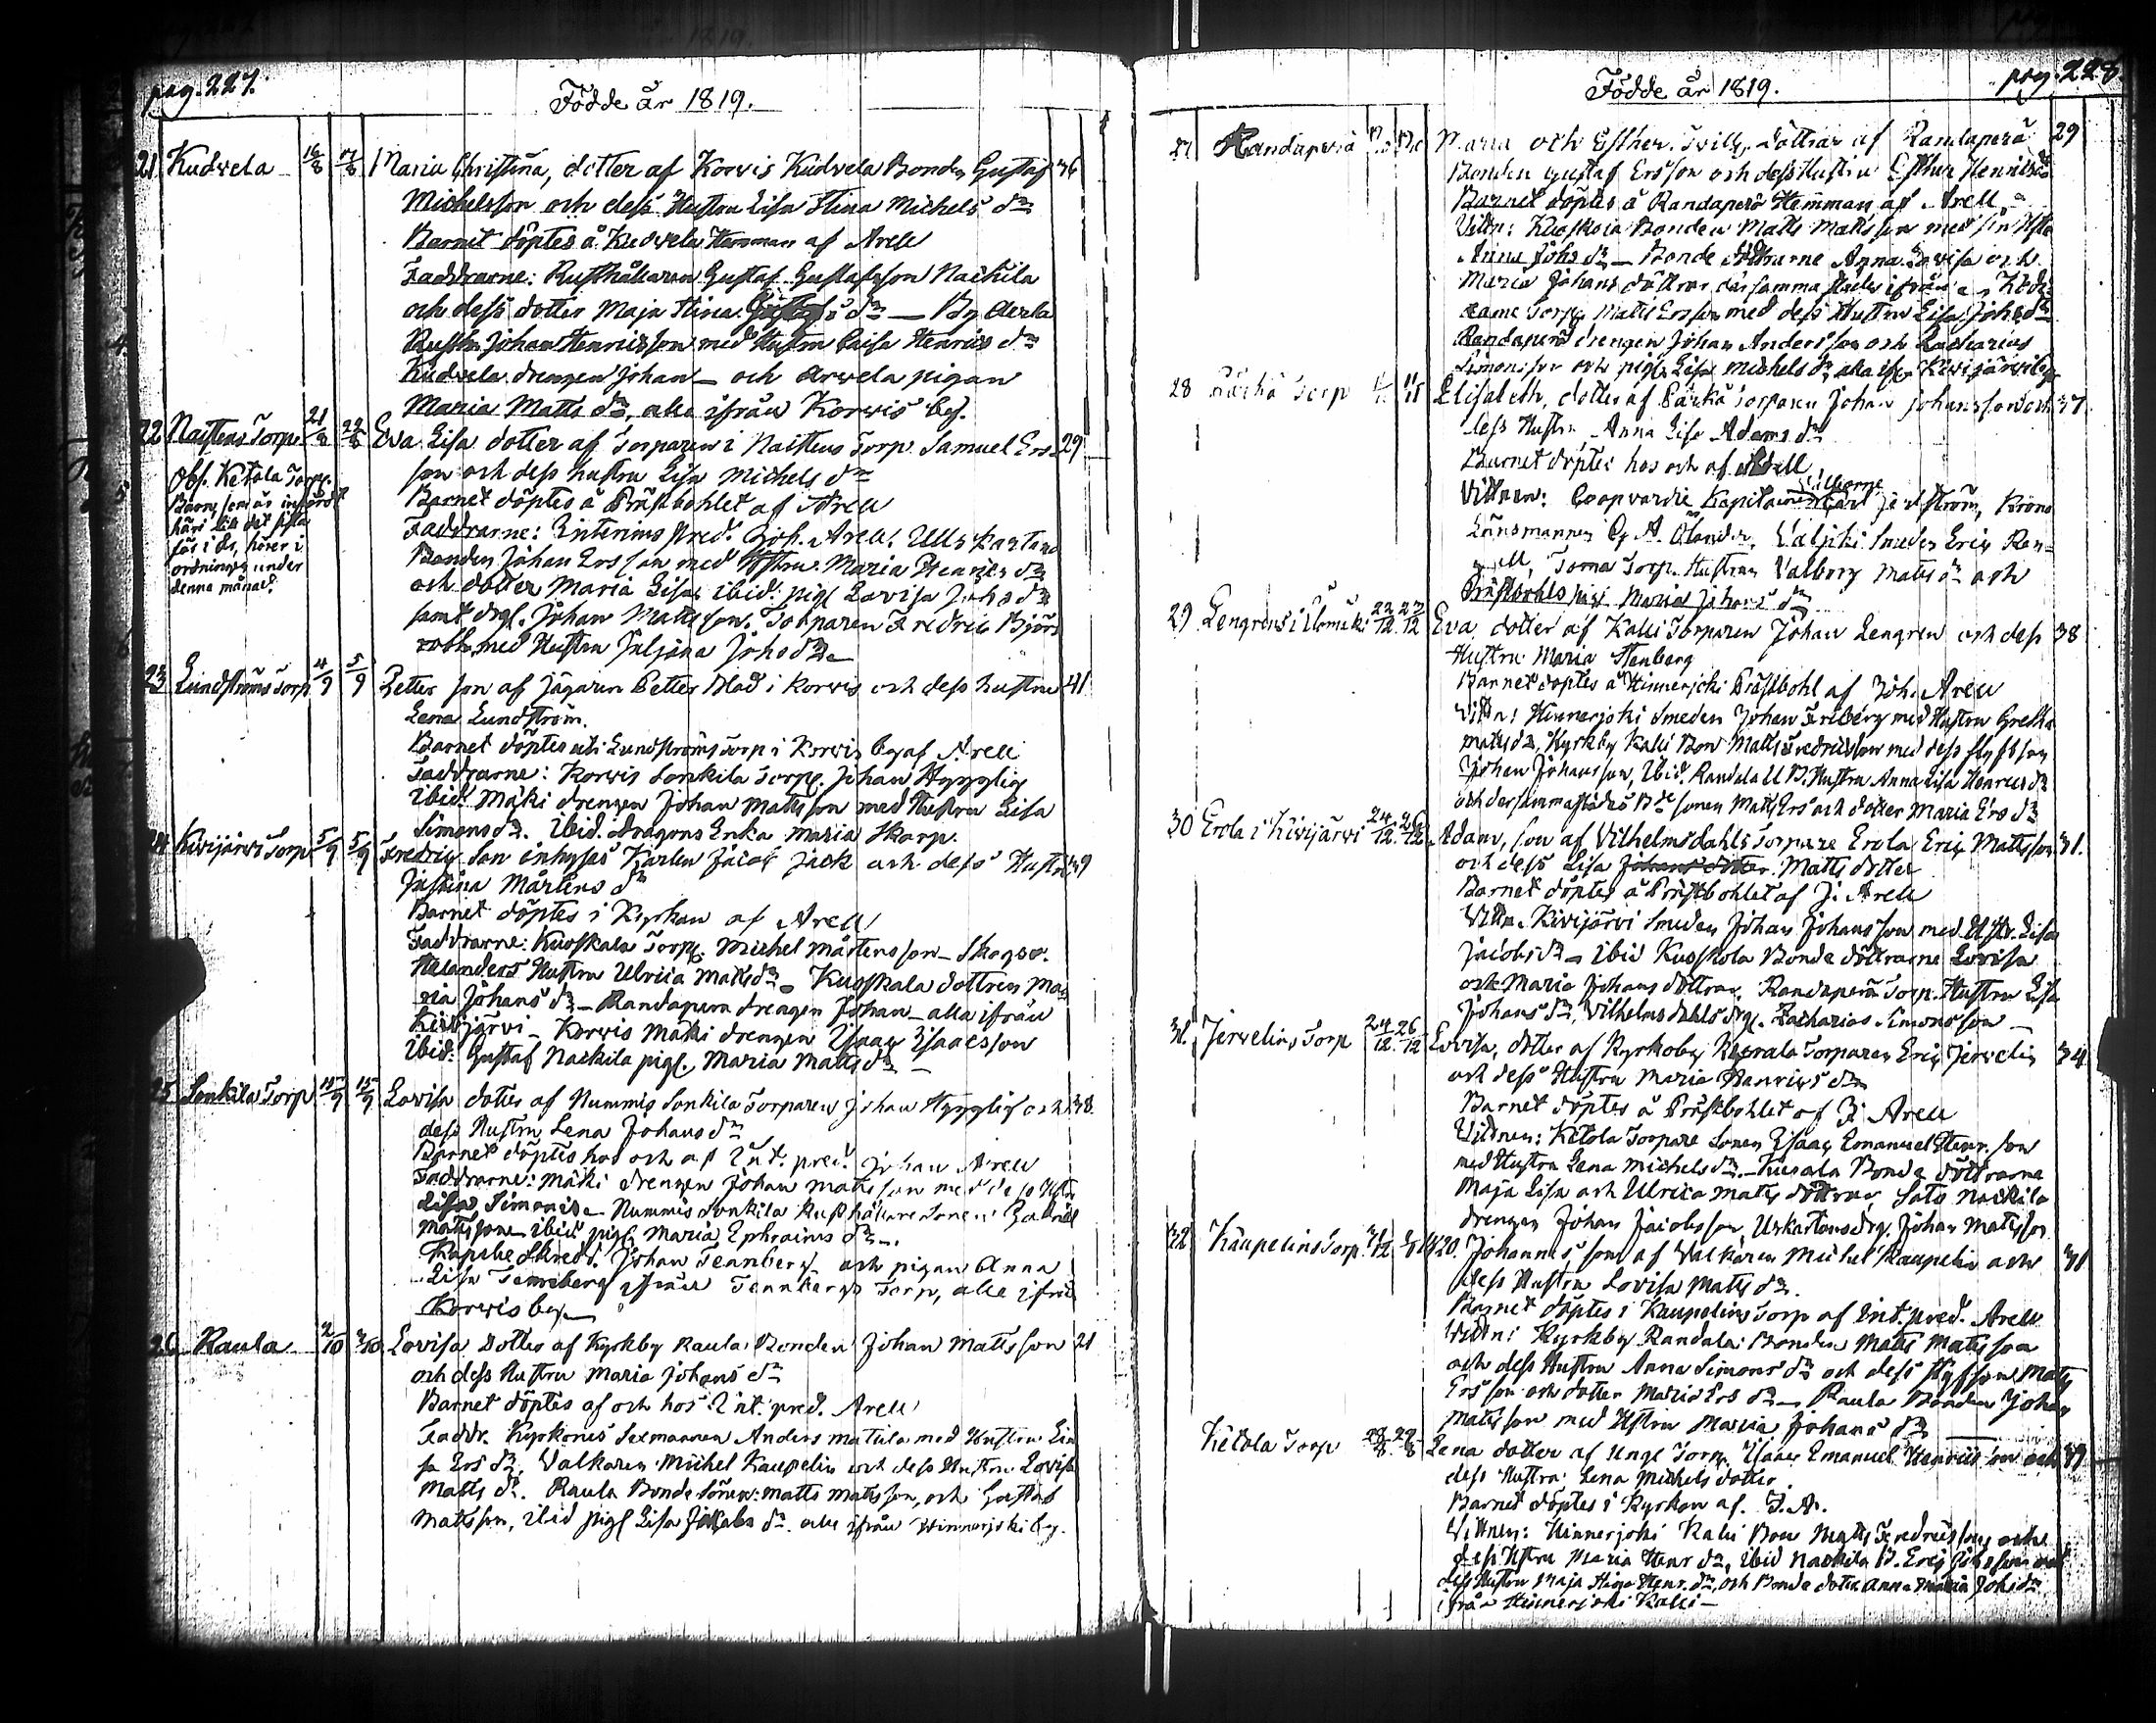 pag. 227.
Födde år 1819.
21 Kudvela 16/8 17/8 Maria Christina, dotter af Korvis Kudvela Bonden Gustaf 36
Michelsson och dess Hustru Lisa Stina Michels dr
Barnet döptes å Kudvela Hemman af Arell
Faddrarne: Rusthållaren Gustaf Gustafsson Naskila
och dess dotter Maja Stina dr — By Aerla
Rusth. Johan Henricsson med Hustru Caisa Henrics dr
Kudvela drengen Johan — och Arvela pigan
Maria Matts dr, alla ifrån Korvis by.
22 Nastens Torp 21/8 22/8 Eva Lisa dotter af Torparen i Nastens Torp Samuel Ers- 29
son och dess hustru Lisa Michels dr
Obs. Ketola Torp.
Barn, som är infördt
här i det sista
hörer i
ordningen under
denna månad.
Barnet döptes å Prästbohlet af Arell
Faddrarne: Interims Pred. Joh. Arell. Ulls
Bonden Johan Ersson med Hustru Maria Henrics dr
och dotter Maria Lisa, ibid. pig. Lovisa Johs dr
samt drg. Johan Mattsson. Torparen Fredric Björ
med Hustru Juljana Johs dr —
23 Lundströms Torp 4/9 5/9 Petter son af Jägaren Petter Blad i Korvis och dess hustru 41
Lena Lundström.
Barnet döptes uti Lundströms Torp i Korvis by af Arell
Faddrarne: Korvis Sonkila Torp. Johan Hygglig
ibid. Mäki drengen Johan Mattsson med Hustru Lisa
Simons dr. Ibid. dragons Enka Maria Skarp.
24 Kivijärvi Torp 5/9 5/9 Fredric Son inhyses Karlen Jacob Jack och dess Hustru 39
Justina Mårtens dr
Barnet döptes i Kyrkan af Arell
Faddrarne: Kuoskala Torp. Michel Mårtensson — Skogso.
Helanders Hustru Ulrica Matts dr — Kuoskala dottren Ma-
ria Johans dr — Randapera drengen Johan — alla ifrån
Kivijärvi — Korvis Mäki drengen Isaac Isaacsson
Ibid: Gustaf Naskila pig. Maria Matts dr —
25 Sonkila Torp 15/9 15/9 Lovisa dotter af Nummis Sonkila Torparen Johan Hygglig och 38
dess Hustru Lena Johans dr
Barnet döptes hos och af Int. pred. Johan Arell
Faddrarne: Mäki drengen Johan Mattsson med dess Hstr
Lisa Simonsd. Nummis Sonkila Rusthållare Sonen Gabriel
Mattsson ibid pig. Maria Ephraims dr —
Skredd. Johan Tennberg och pigan Anna
Lisa Tennberg ifrån Tennbergs Torp, alla ifrån
Korvis by —
26 Raula 2/10 3/10 Lovisa Dotter af Kyrkby Raula Bonden Johan Mattsson 21
och dess Hustru Maria Johans dr
Barnet döptes af och hos Int. pred. Arell
Faddr. Kyrkones Sexmannen Anders Matula med Hustru Li-
sa Ers dr, Valkaren Michel Kaupelin och dess Hustru Lovisa
Matts dr. Raula Bonde Sönen: Matts Mattsson, och Gustaf
Mattsson, ibid pig Lisa Jakobs dr. alla ifrån Hinnerjoki by.
pag. 228.
Födde år 1819.
27 Randaperä Maria och Esther. Tvill. döttrar af Randaperä 29
Bonden Gustaf Ersson och dess Hustru Esther Henricsdr
Barnet döptes å Randaperä Hemman af Arell —
Vittn: Kuoskola Bonden Matts Mattsson med sin Hstr
Anna Johs dr — Bonde döttrarne Anna Lovisa och
Maria Johans döttrar
Torp. Matts Ersson med dess Hustru Lisa Johs dr
Randaperä drengen Johan Andersson och Zacharias
Simonsson och pig. Lisa Michels dr, alla ifr. Kivijärvi by
28 Pärkä Torp Elisabeth, dotter af Pärkä Torparen Johan Johansson och 37
dess Hustru Anna Lisa Adams dr
Barnet döptes hos och af Arell
Vittnen: Coopvardie Kapitainen Carl Jernström, Krono
Länsmannen A. Olander, Smeden Eric Ran-
gell, Toma Torp. Hustrun Valborg Matts dr och
Prästbohls pig. Maria Johans dr
29 Lengrens i 22/12 27/12 Eva dotter af Kalli Torparen Johan Lengren och dess 38
Hustru Maria Stenberg
Barnet döptes å Hinnerjoki Prästbohl af Joh. Arell
Vittn: Hinnerjoki Smeden Johan Friberg med Hustru Gretha
Matts dr, Kyrkby Kalli Bon. Matts Fredricsson med dess styfson
Johan Johansson, Ibid. Randala U.B. Hustru Anna Lisa Henrics dr
och dersammastädes Bde sonen Matts Ers och dotter Maria Ers dr
30 Erola i Kivijärvi 24/12 26/12 Adam, son af Vilhelmsdahls Torpare Erola Eric Mattsson 31.
och dess Lisa Johans dotter Matts dotter
Barnet döptes å Prästbohlet af J. Arell
Vittn. Kivijärvi Smeden Johan Johansson med Hstr. Lisa
Jacobs dr — ibid Kuoskola Bonde döttrarne Lovisa
och Maria Johans döttrar, Randaperä Torp. Hustru Lisa
Johans dr, Vilhelmsdahls drg. Zacharias Simonsson —
31. Jervelins Torp 24/12 26/12 Lovisa, dotter af Kyrkoby Torparen Eric Jervelin 34
och dess Hustru Maria Henrics dr
Barnet döptes å Prästbohlet af J. Arell
Vittnen: Ketola Torpare Sonen Isaac Emanuel Henr. son
med Hustru Lena Michels dr — Bonde döttrarne
Maja Lisa och Ulrica Matts döttrar Sato Naskila
drengen Johan Jacobsson, drg. Johan Mattsson
32 Kaupelins Torp 31/12 1820. Johannes son af Valkaren Michel Kaupelin och 31
dess Hustru Lovisa Matts dr.
Barnet döptes i Kaupelins Torp af Int. pred. Arell
Vittn: Kyrkby Randala Bonden Matts Mattsson
och dess Hustru Anna Simons dr och dess styfson Matts
Ersson och dotter Maria Ers dr — Raula Bonden Johan
Mattsson med Hstru Maria Johans dr
Ketola Torp 28/8 29/8 Lena dotter af Unge Torp. Isaac Emanuel Henricsson och 39
dess Hustru Lena Michels dotter.
Barnet döptes i Kyrkan af J. A.
Vittnen: Hinnerjoki Kalli Bon Matts Fredricsson och
dess Hstru Maria Henr dr, ibid Naskila B. Eric
dess Hustru Maja Stina Henr. dr, och Bonde dotter Anna Maria Johs dr
ifrån Hinnerjoki Kalli —